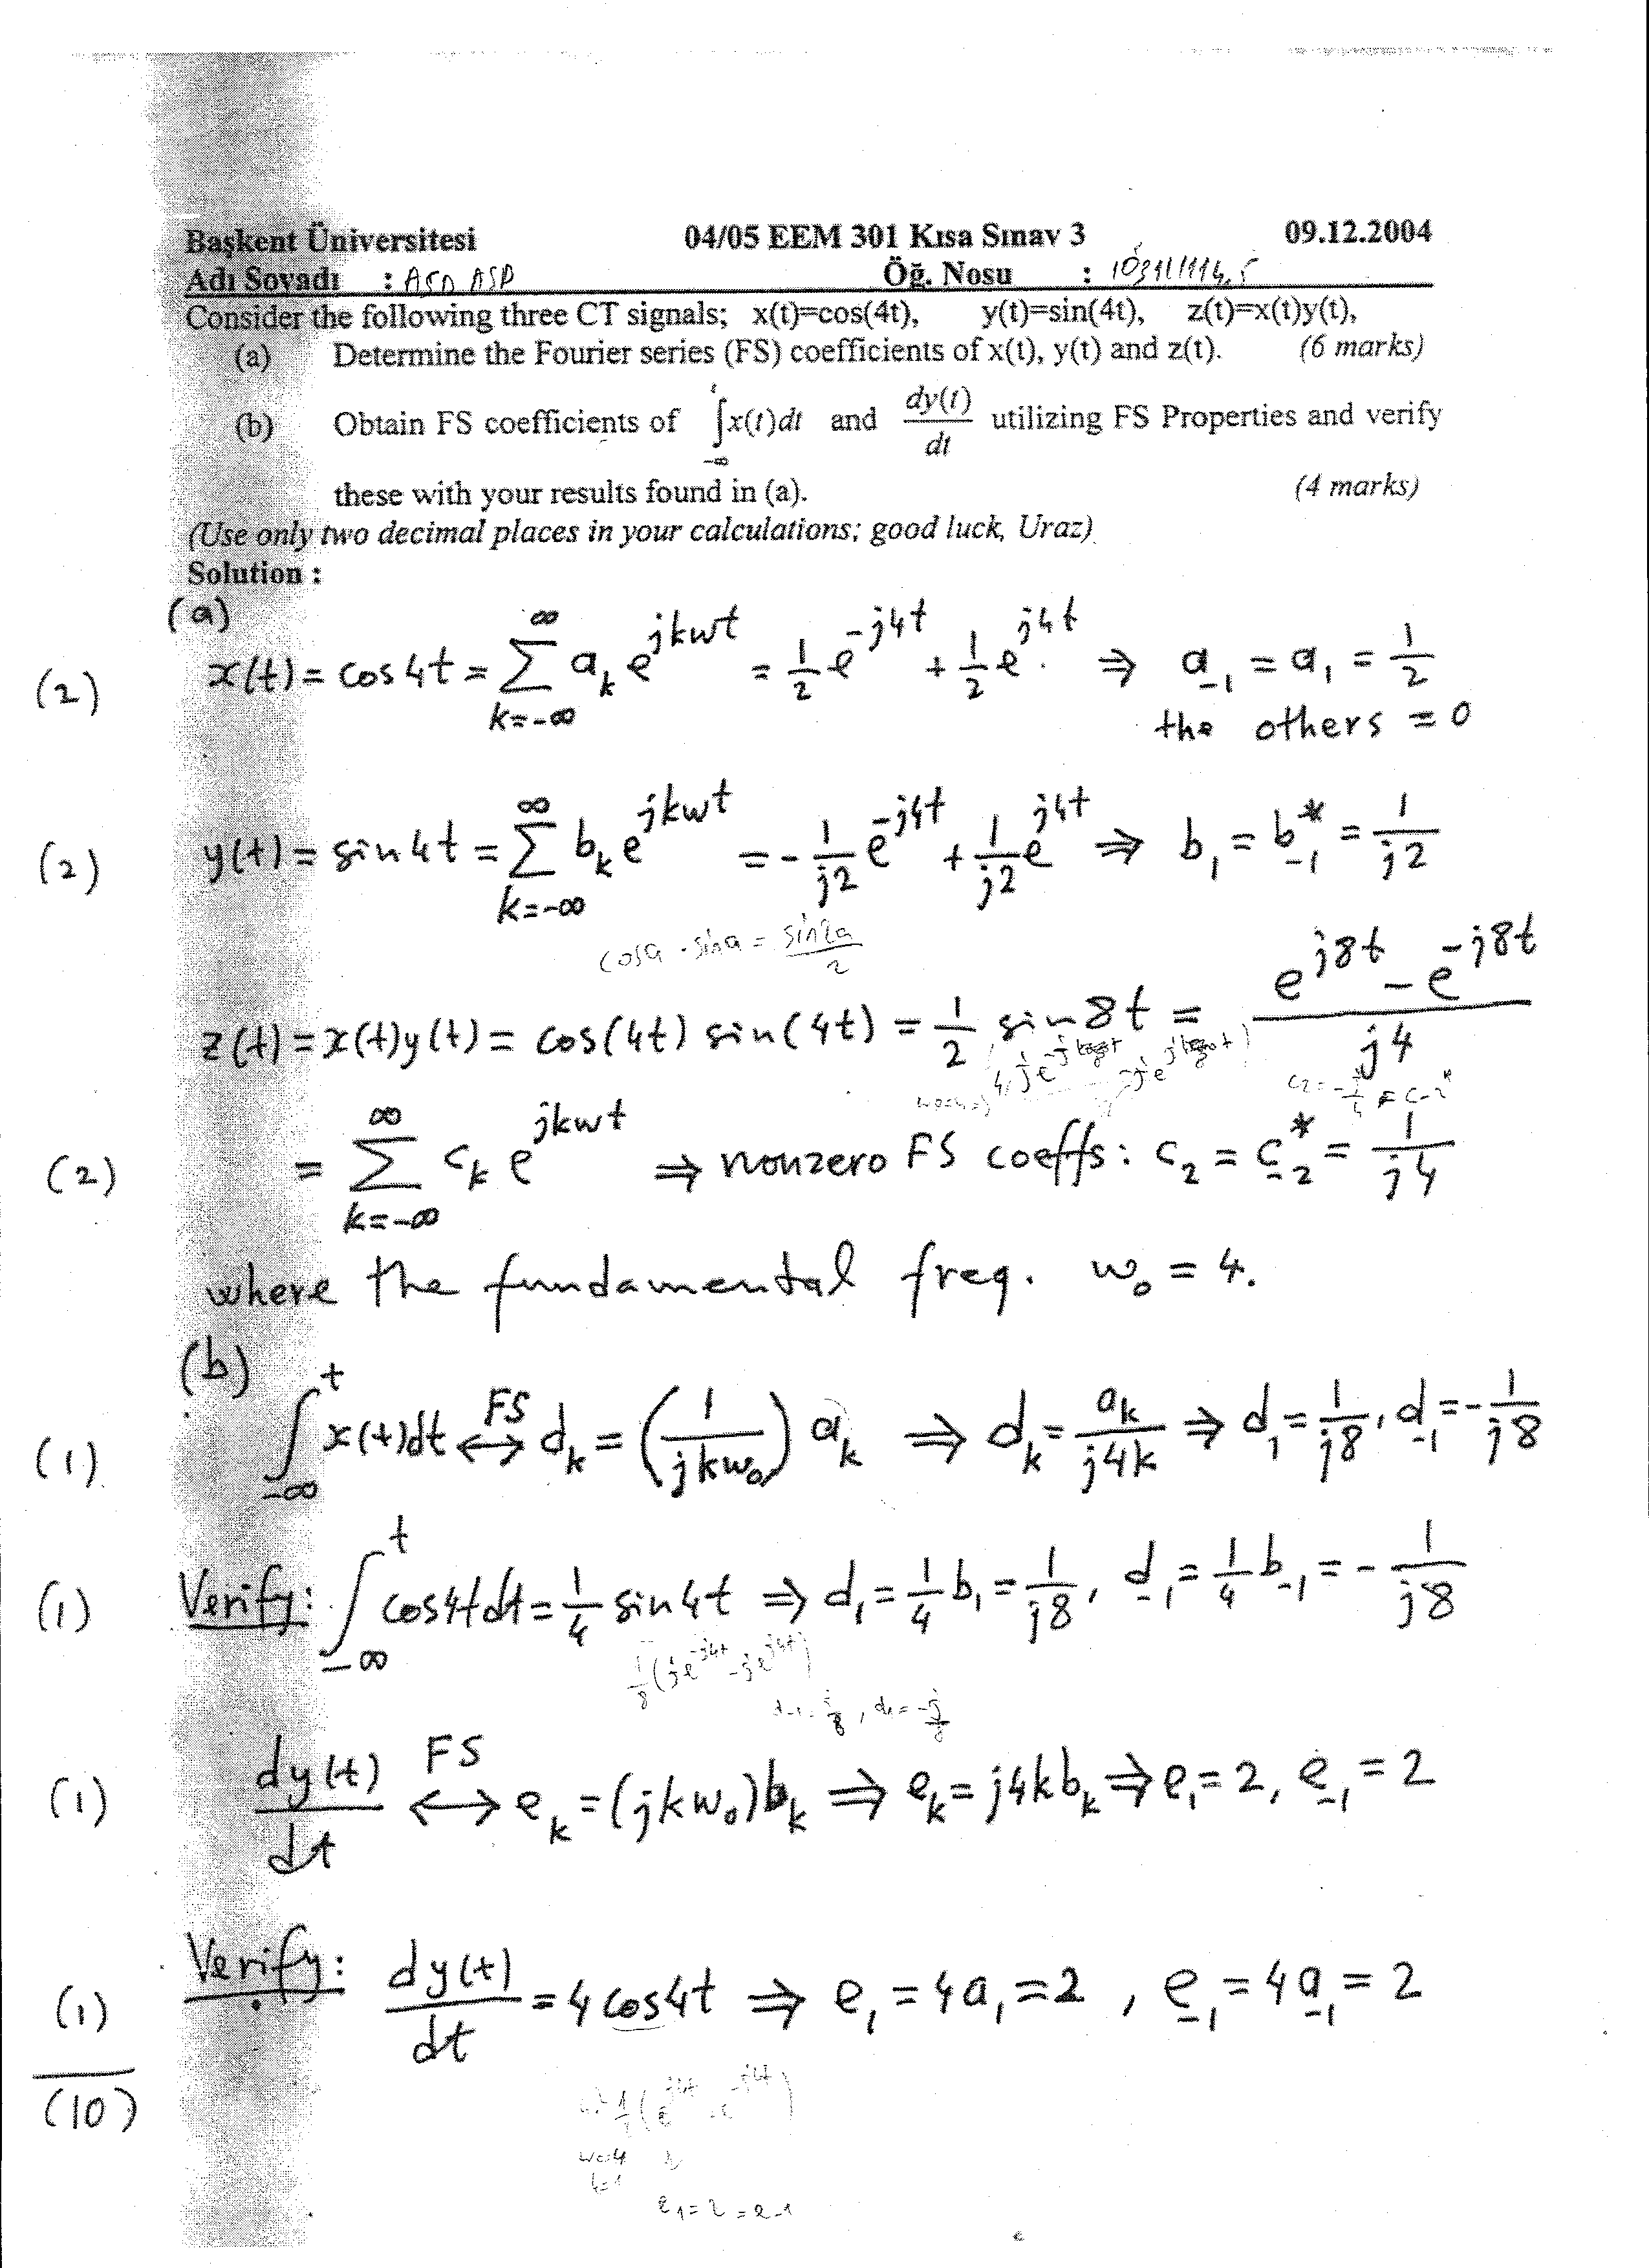 Başkent Üniversitesi 04/05 EEM 301 Kısa Sınav 3 09.12.2004
Adı Soyadı : Öğ. Nosu :
Consider the following three CT signals; x(t)=cos(4t), y(t)=sin(4t), z(t)=x(t)y(t),
(a) Determine the Fourier series (FS) coefficients of x(t), y(t) and z(t). (6 marks)
(b) Obtain FS coefficients of ∫_{-∞}^{t} x(t)dt and dy(t)/dt utilizing FS Properties and verify
these with your results found in (a). (4 marks)
(Use only two decimal places in your calculations; good luck, Uraz)
Solution :
(a)
(2) x(t) = cos4t = Σ_{k=-∞}^{∞} a_k e^{jkwt} = 1/2 e^{-j4t} + 1/2 e^{j4t} ⇒ a_{-1} = a_1 = 1/2
the others = 0
(2) y(t) = sin4t = Σ_{k=-∞}^{∞} b_k e^{jkwt} = -1/j2 e^{-j4t} + 1/j2 e^{j4t} ⇒ b_1 = b_{-1}^* = 1/j2
cosa · sina = sin2a/2
z(t) = x(t)y(t) = cos(4t) sin(4t) = 1/2 sin8t = (e^{j8t} - e^{-j8t})/j4
(2) = Σ_{k=-∞}^{∞} c_k e^{jkwt} ⇒ nonzero FS coeffs: c_2 = c_{-2}^* = 1/j4
where the fundamental freq. w_0 = 4.
(b)
(1) ∫_{-∞}^{t} x(t)dt ↔^{FS} d_k = (1/jkw_0) a_k ⇒ d_k = a_k/j4k ⇒ d_1 = 1/j8, d_{-1} = -1/j8
(1) Verify: ∫_{-∞}^{t} cos4tdt = 1/4 sin4t ⇒ d_1 = 1/4 b_1 = 1/j8, d_{-1} = 1/4 b_{-1} = -1/j8
1/8 (je^{-j4t} - je^{j4t})
d_{-1} = j/8, d_1 = -j/8
(1) dy(t)/dt ↔^{FS} e_k = (jkw_0)b_k ⇒ e_k = j4kb_k ⇒ e_1 = 2, e_{-1} = 2
(1) Verify: dy(t)/dt = 4cos4t ⇒ e_1 = 4a_1 = 2, e_{-1} = 4a_{-1} = 2
(10)
e_1 = 2 = e_{-1}